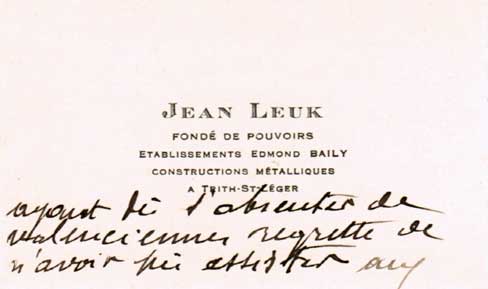 JEAN LEUK
FONDÉ DE POUVOIRS
ETABLISSEMENTS EDMOND BAILY
CONSTRUCTIONS MÉTALLIQUES
A TRITH-ST-LÉGER
ayant dû s'absenter de
Valenciennes regrette de
n'avoir pu assister aux